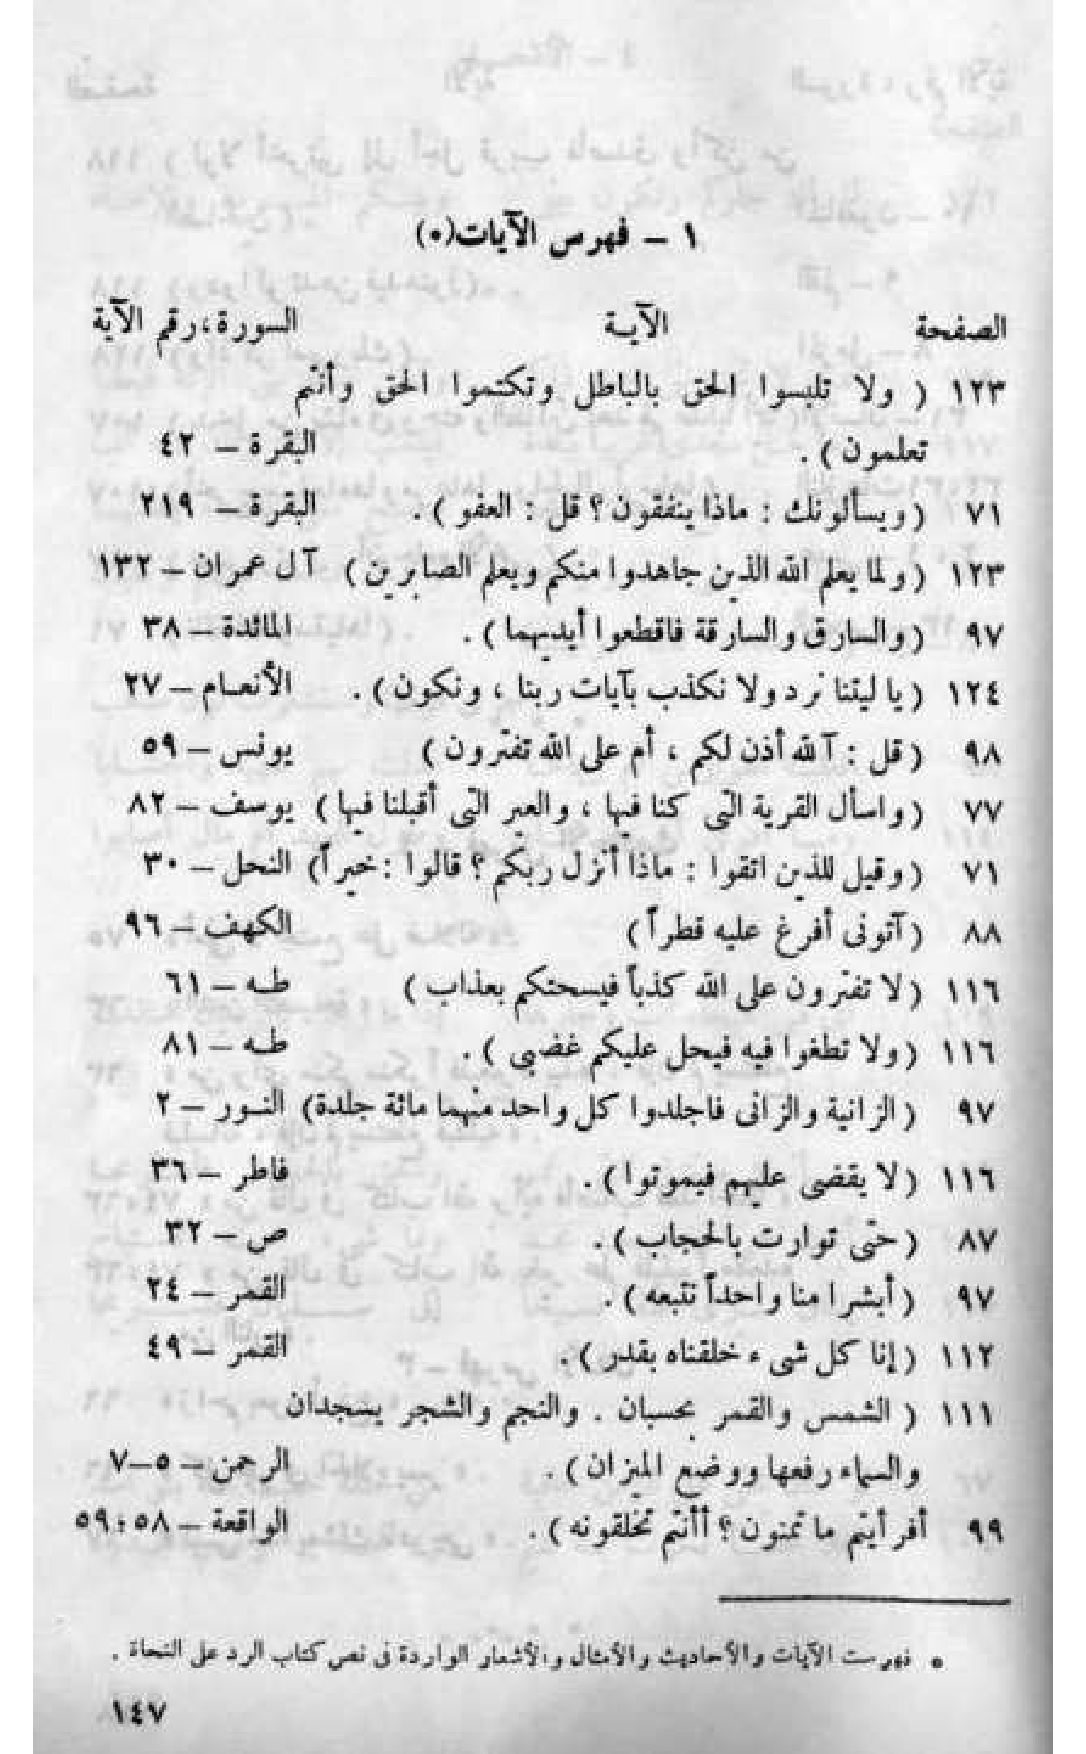 ١ – فهرس الآيات(٠)
الصفحة الآيـة السورة،رقم الآية
١٢٣ ( ولا تلبسوا الحق بالباطل وتكتموا الحق وأنتم
تعلمون ) . البقرة – ٤٢
٧١ ( ويسألونك : ماذا ينفقون ؟ قل : العفو ) . البقرة – ٢١٩
١٢٣ ( ولما يعلم الله الذين جاهدوا منكم ويعلم الصابرين ) آل عمران – ١٣٢
٩٧ ( والسارق والسارقة فاقطعوا أيديهما ) . المائدة – ٣٨
١٢٤ ( يا ليتنا نرد ولا نكذب بآيات ربنا ، ونكون ) . الأنعـام – ٢٧
٩٨ ( قل : آلله أذن لكم ، أم على الله تفترون ) يونس – ٥٩
٧٧ ( واسأل القرية التى كنا فيها ، والعير التى أقبلنا فيها ) يوسف – ٨٢
٧١ ( وقيل للذين اتقوا : ماذا أنزل ربكم ؟ قالوا : خيراً ) النحل – ٣٠
٨٨ ( آتونى أفرغ عليه قطراً ) الكهف – ٩٦
١١٦ ( لا تفترون على الله كذباً فيسحتكم بعذاب ) طـه – ٦١
١١٦ ( ولا تطغوا فيه فيحل عليكم غضبى ) . طـه – ٨١
٩٧ ( الزانية والزانى فاجلدوا كل واحد منهما مائة جلدة ) النـور – ٢
١١٦ ( لا يقضى عليهم فيموتوا ) . فاطر – ٣٦
٨٧ ( حتى توارت بالحجاب ) . ص – ٣٢
٩٧ ( أبشرا منا واحداً نتبعه ) . القمر – ٢٤
١١٢ ( إنا كل شىء خلقناه بقدر ) . القمر – ٤٩
١١١ ( الشمس والقمر بحسبان . والنجم والشجر يسجدان
والسماء رفعها ووضع الميزان ) . الرحمن – ٥–٧
٩٩ أفرأيتم ما تمنون ؟ أأنتم تخلقونه ) . الواقعة – ٥٨،٥٩
• فهرست الآيات والأحاديث والأمثال والأشعار الواردة فى نص كتاب الرد على النحاة .
١٤٧